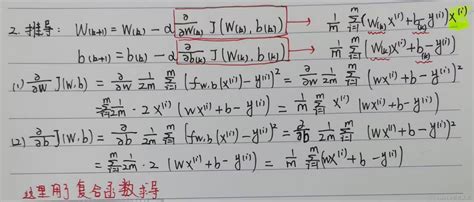 2. 推导: W(k+1) = W(k) - α ∂/∂W(k) J(W(k), b(k)) → 1/m Σ_{i=1}^{m} (W(k) x^(i) + b(k) - y^(i)) x^(i)
b(k+1) = b(k) - α ∂/∂b(k) J(W(k), b(k)) → 1/m Σ_{i=1}^{m} (W(k) x^(i) + b(k) - y^(i))
(1) ∂/∂W J(W,b) = ∂/∂W 1/2m Σ_{i=1}^{m} (f_{w,b}(x^(i)) - y^(i))² = ∂/∂W 1/2m Σ_{i=1}^{m} (wx^(i) + b - y^(i))²
= Σ_{i=1}^{m} 1/2m · 2 x^(i) (wx^(i) + b - y^(i)) = 1/m Σ_{i=1}^{m} x^(i) (wx^(i) + b - y^(i))
(2) ∂/∂b J(w,b) = ∂/∂b 1/2m Σ_{i=1}^{m} (f_{w,b}(x^(i)) - y^(i))² = ∂/∂b 1/2m Σ_{i=1}^{m} (wx^(i) + b - y^(i))²
= Σ_{i=1}^{m} 1/2m · 2 (wx^(i) + b - y^(i)) = 1/m Σ_{i=1}^{m} (wx^(i) + b - y^(i))
这里用了复合函数求导